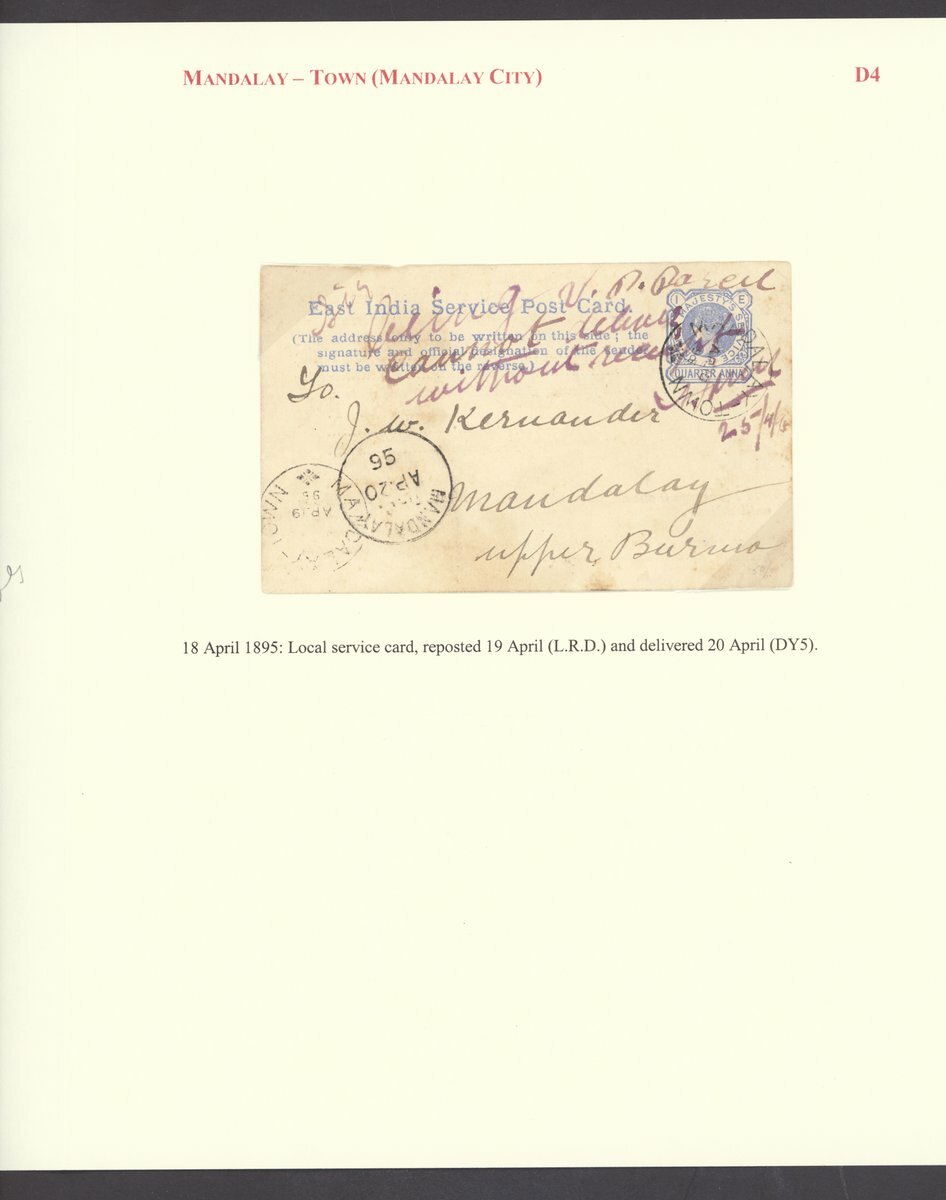 MANDALAY – TOWN (MANDALAY CITY) D4
V. P. Parcel
East India Service Post Card.
(The address only to be written on this side; the
signature and official designation of the sender
must be written on the reverse.)
cannot
without
25/4/
QUARTER ANNA
To.
J. W. Kernander
Mandalay
upper Burma
MANDALAY
AP.20
95
TOWN
AP.19
95
TOWN
18 April 1895: Local service card, reposted 19 April (L.R.D.) and delivered 20 April (DY5).